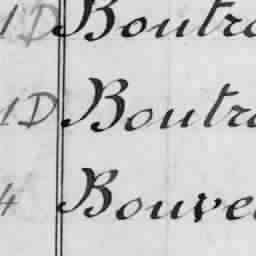 1D Boutro
1D Boutro
4 Bouve